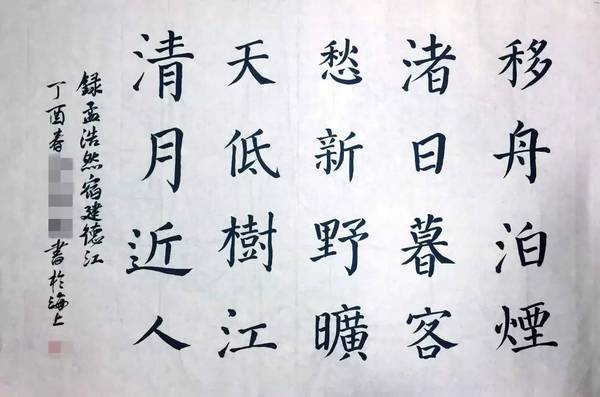 移舟泊煙
渚日暮客
愁新野曠
天低樹江
清月近人
録孟浩然宿建德江
丁酉春 書於海上